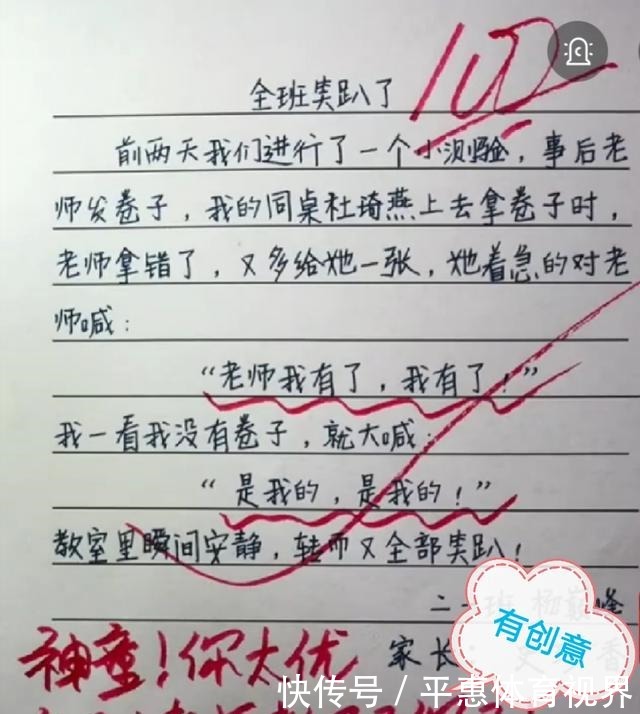 100
全班笑趴了
前两天我们进行了一个小测验，事后老
师发卷子，我的同桌杜琦燕上去拿卷子时，
老师拿错了，又多给她一张，她着急的对老
师喊：
“老师我有了，我有了！”
我一看我没有卷子，就大喊：
“是我的，是我的！”
教室里瞬间安静，转而又全部笑趴！
二 班 杨 峰
家长： 香
有创意
神童！你太优
快传号 / 平惠体育视界